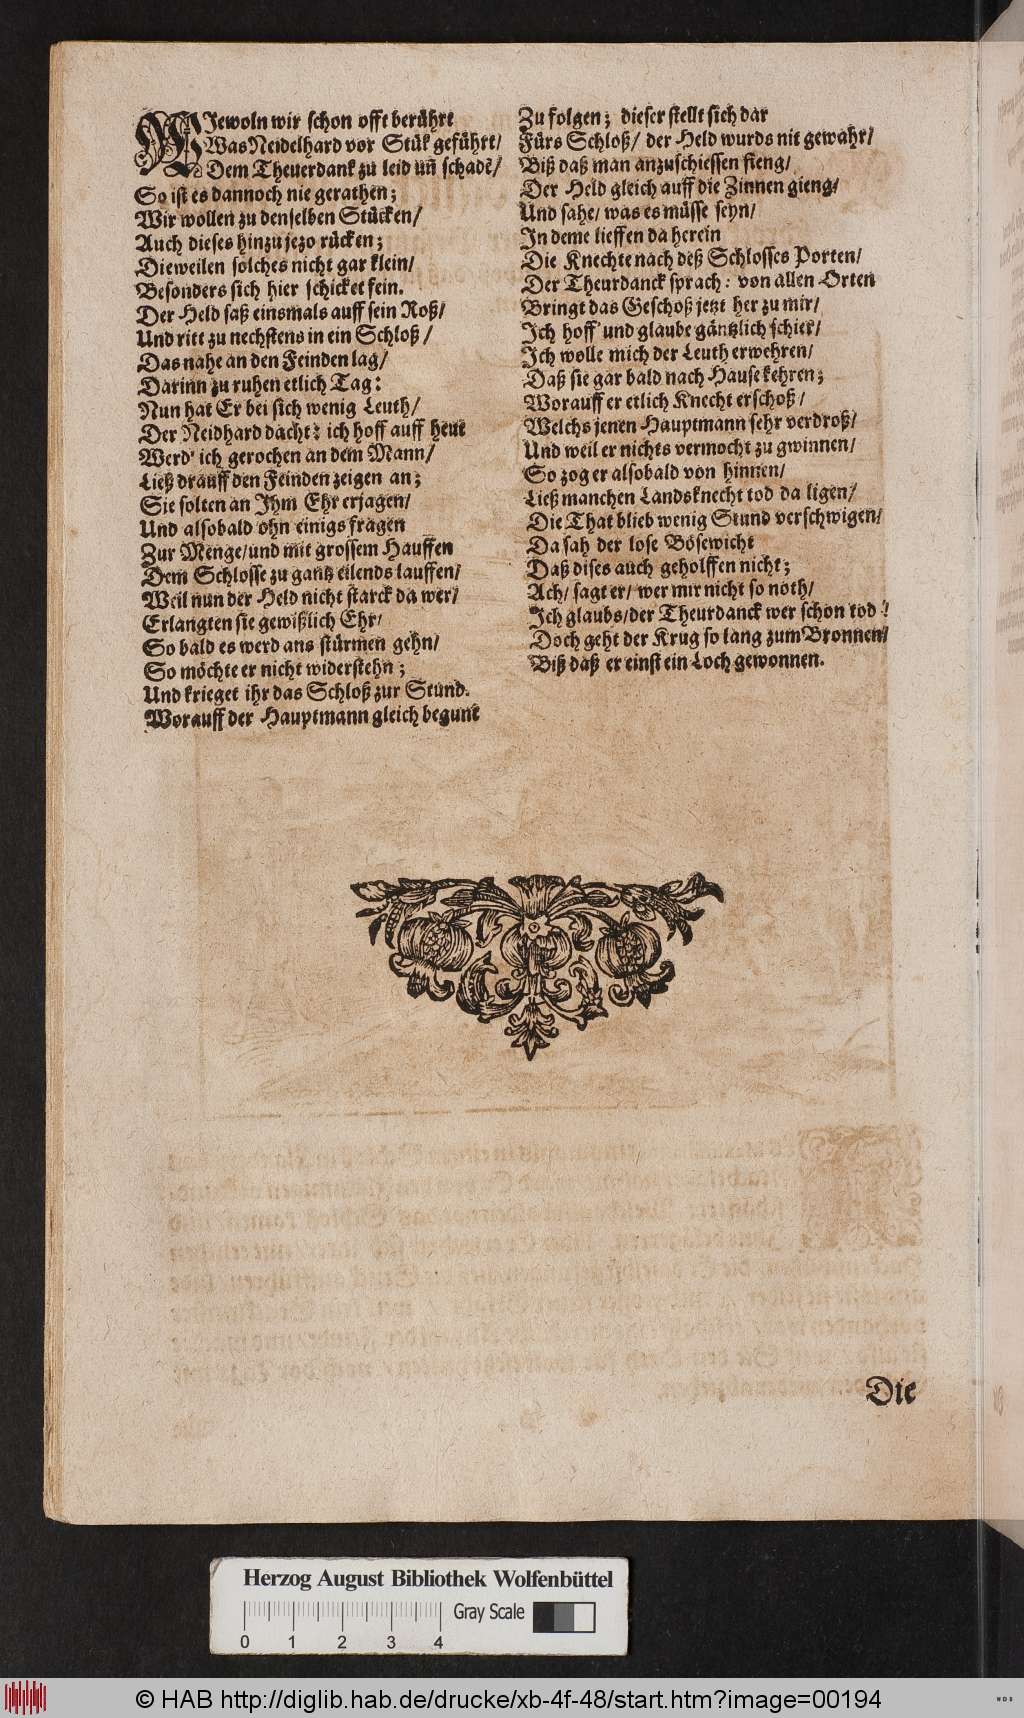 WIewoln wir schon offt berührt
Was Neidelhard vor Stük geführt/
Dem Theuerdank zu leid uñ schadē/
So ist es dannoch nie gerathen;
Wir wollen zu denselben Stücken/
Auch dieses hinzu jezo rücken;
Dieweilen solches nicht gar klein/
Besonders sich hier schicket fein.
Der Held saß einsmals auff sein Roß/
Und ritt zu nechstens in ein Schloß/
Das nahe an den Feinden lag/
Darinn zu ruhen etlich Tag:
Nun hat Er bei sich wenig Leuth/
Der Neidhard dacht: ich hoff auff heut
Werd' ich gerochen an dem Mann/
Ließ drauff den Feinden zeigen an;
Sie solten an Jhm Ehr erjagen/
Und alsobald ohn einigs fragen
Zur Menge/und mit grossem Hauffen
Dem Schlosse zu gantz eilends lauffen/
Weil nun der Held nicht starck da wer/
Erlangten sie gewißlich Ehr/
So bald es werd ans stürmen gehn/
So möchte er nicht widerstehn;
Und krieget ihr das Schloß zur Stund.
Worauff der Hauptmann gleich begunt
Zu folgen; dieser stellt sich dar
Fürs Schloß/ der Held wurds nit gewahr/
Biß daß man anzuschiessen fieng/
Der Held gleich auff die Zinnen gieng/
Und sahe/ was es müsse seyn/
In deme lieffen da herein
Die Knechte nach deß Schlosses Porten/
Der Theurdanck sprach: von allen Orten
Bringt das Geschoß jetzt her zu mir/
Jch hoff' und glaube gäntzlich schier/
Jch wolle mich der Leuth erwehren/
Daß sie gar bald nach Hause kehren;
Worauff er etlich Knecht erschoß/
Welchs jenen Hauptmann sehr verdroß/
Und weil er nichts vermocht zu gwinnen/
So zog er alsobald von hinnen/
Ließ manchen Landsknecht tod da ligen/
Die That blieb wenig Stund verschwigen/
Da sah der lose Bösewicht
Daß dises auch geholffen nicht;
Ach/ sagt er/ wer mir nicht so noth/
Jch glaubs/der Theurdanck wer schon tod!
Doch geht der Krug so lang zum Bronnen/
Biß daß er einst ein Loch gewonnen.
Die
Herzog August Bibliothek Wolfenbüttel
Gray Scale
0 1 2 3 4
© HAB http://diglib.hab.de/drucke/xb-4f-48/start.htm?image=00194